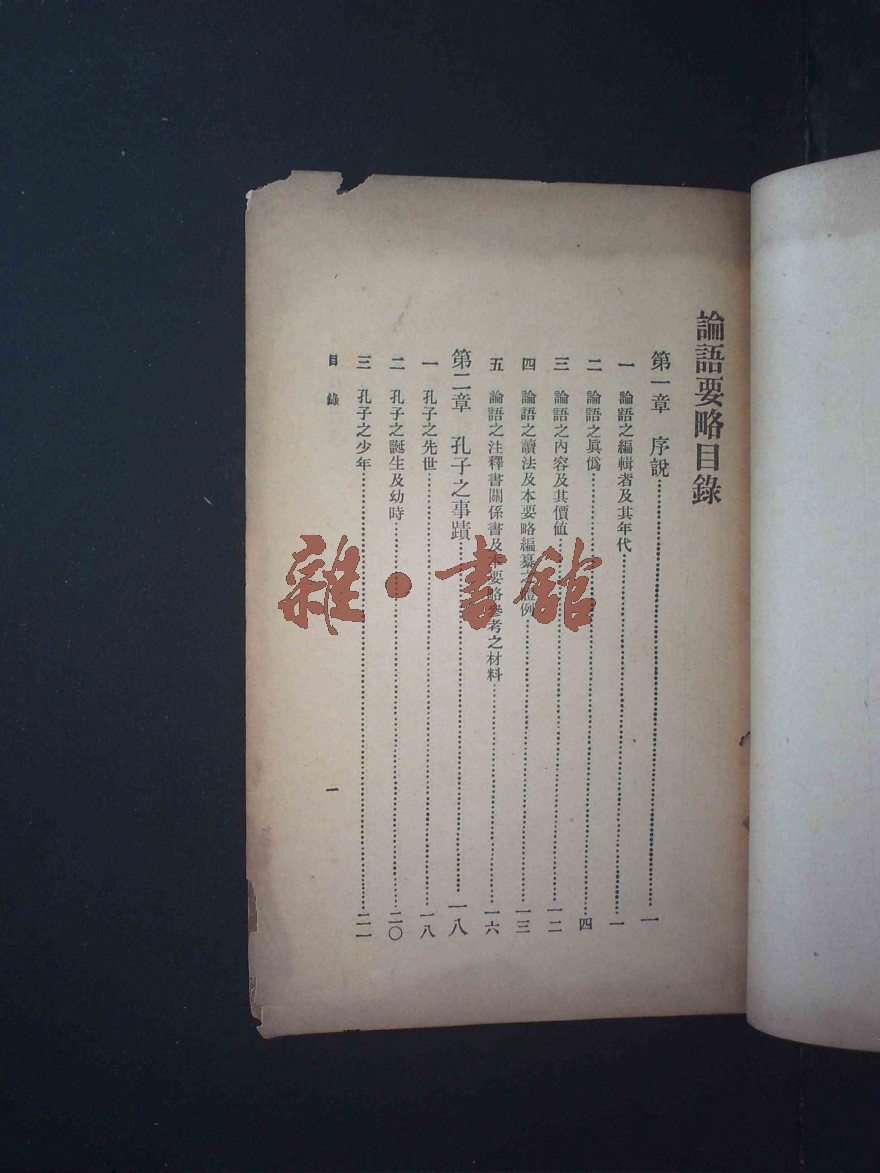 論語要略目錄
第一章 序說……一
一 論語之編輯者及其年代……一
二 論語之眞僞……四
三 論語之內容及其價値……一二
四 論語之讀法及本要略編纂之體例……一三
五 論語之注釋書關係書及本要略參考之材料……一六
第二章 孔子之事蹟……一八
一 孔子之先世……一八
二 孔子之誕生及幼時……二〇
三 孔子之少年……二一
目錄
一
雜·書館